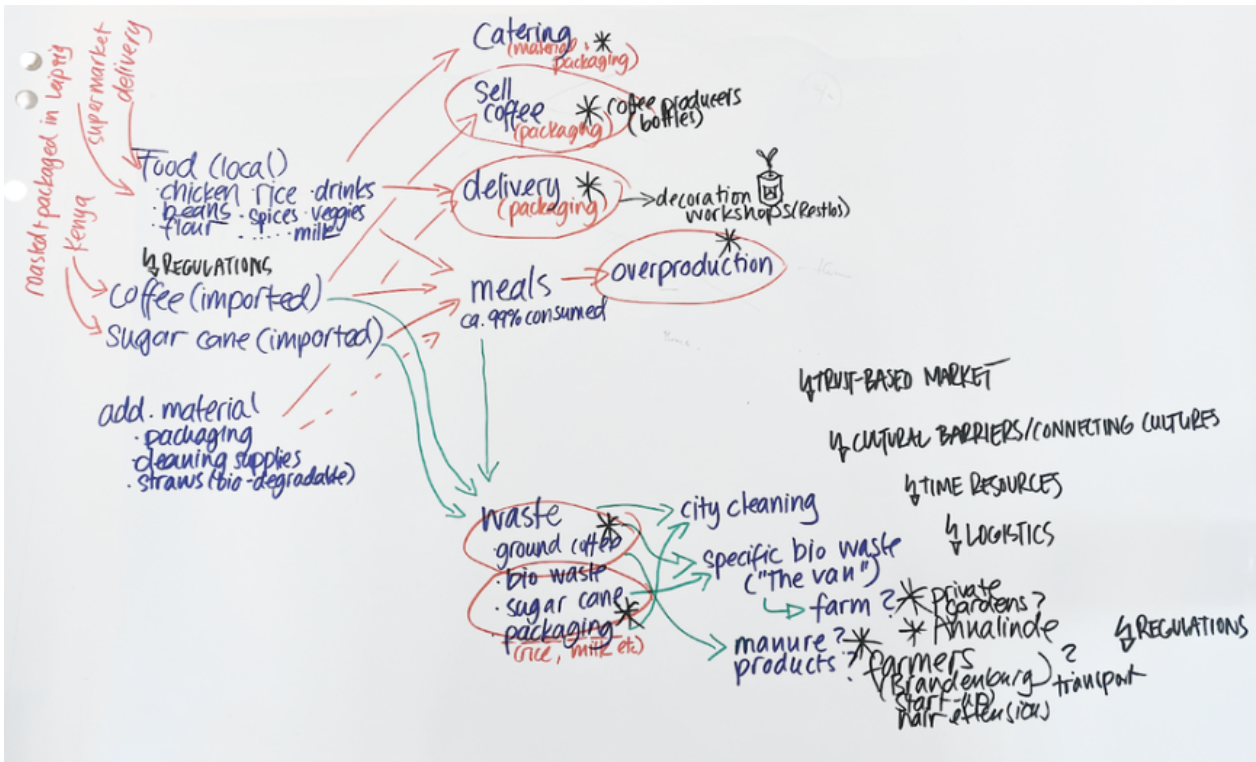 roasted + packaged in Leipzig
supermarket
delivery
Kenya
Food (local)
· chicken · rice · drinks
· beans · spices · veggies
· flour ..... · milk
REGULATIONS
coffee (imported)
sugar cane (imported)
add. material
· packaging
· cleaning supplies
· straws (bio-degradable)
Catering
(material + packaging)
Sell
coffee
(packaging)
coffee producers
(bottles)
delivery
(packaging)
decoration
workshops (Restlos)
meals
ca. 99% consumed
overproduction
waste
· ground coffee
· bio waste
· sugar cane
· packaging
(rice, milk etc)
city cleaning
specific bio waste
("The van")
farm?
private
gardens?
Annalinde
manure?
products?
farmers
(Brandenburg)
?
transport
start-up
hair extensions
TRUST-BASED MARKET
CULTURAL BARRIERS/CONNECTING CULTURES
TIME RESOURCES
LOGISTICS
REGULATIONS